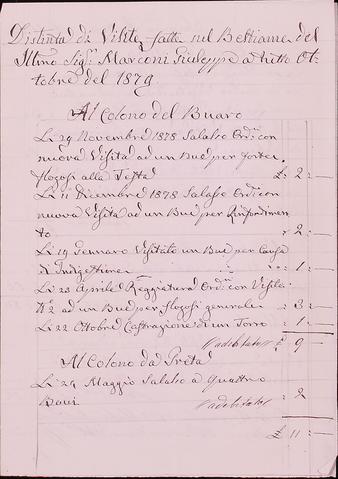 Distinta di Visite fatte nel Bestiame del
Illmo Sigr. Marconi Giuseppe a tutto Ot-
tobre del 1879
Al Colono del Buaro
Li 29 Novembre 1878 Salasso Ord: con
nuova Visita ad un Bue per forte
flogosi alla Testa £: 2: —
Li 11 Dicembre 1878 Salasso Ord: con
nuova Visita ad un Bue per Rinfondimen
to " 2: —
Li 19 Gennaro Visitato un Bue per Causa
di Indigestione " 1: —
Li 23 Aprile Ord: con Visita
N.2 ad un Bue per flogosi generale " 3: —
Li 22 Ottobre Castragione di un Toro " 1: —
£ 9 —
Al Colono da Preta
Li 29 Maggio Salasso a Quattro
Bovi " 2
£ 11: —